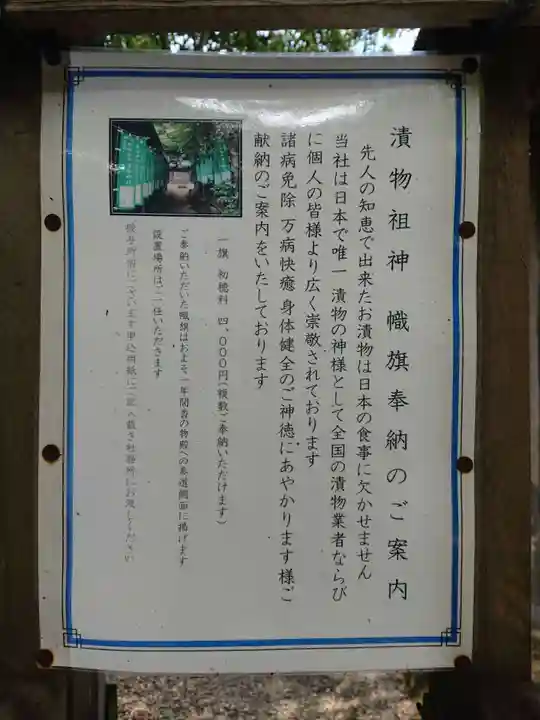 漬物祖神 幟旗奉納のご案内
先人の知恵で出来たお漬物は日本の食事に欠かせません
当社は日本で唯一漬物の神様として全国の漬物業者ならび
に個人の皆様より広く崇敬されております
諸病免除 万病快癒 身体健全のご神徳にあやかります様ご
献納のご案内をいたしております
一旗 初穂料 四、〇〇〇円(複数ご奉納いただけます)
ご奉納いただいた幟旗はおよそ一年間香の物殿への参道側面に掲げます
設置場所はご一任いただきます
授与所前にございます申込用紙にご記入戴き社務所にお渡しください